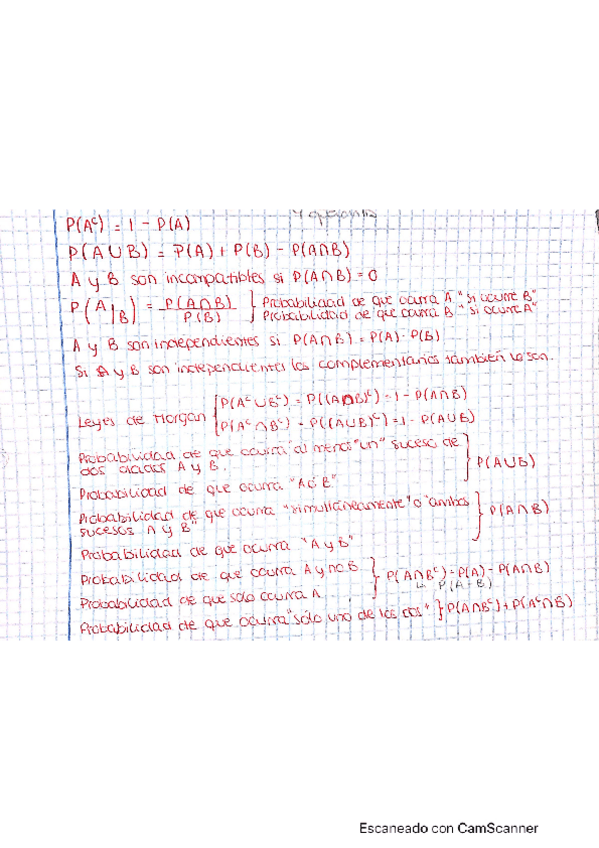 P(Aᶜ) = 1 - P(A)
P(A∪B) = P(A) + P(B) - P(A∩B)
A y B son incompatibles si P(A∩B) = 0
P(A|B) = P(A∩B) / P(B) } Probabilidad de que ocurra A "si ocurre B"
Probabilidad de que ocurra B "si ocurre A"
A y B son independientes si P(A∩B) = P(A) · P(B)
Si A y B son independientes los complementarios también lo son.
Leyes de Morgan { P(Aᶜ∪Bᶜ) = P((A∩B)ᶜ) = 1 - P(A∩B)
P(Aᶜ∩Bᶜ) = P((A∪B)ᶜ) = 1 - P(A∪B)
Probabilidad de que ocurra "al menos "un" suceso de
dos dados A y B. } P(A∪B)
Probabilidad de que ocurra "A ó B"
Probabilidad de que ocurra "simultáneamente" o "ambos
sucesos A y B" } P(A∩B)
Probabilidad de que ocurra "A y B"
Probabilidad de que ocurra A y no B } P(A∩Bᶜ) = P(A) - P(A∩B)
P(A-B)
Probabilidad de que solo ocurra A.
Probabilidad de que ocurra "sólo uno de los dos" } P(A∩Bᶜ) + P(Aᶜ∩B)
Escaneado con CamScanner